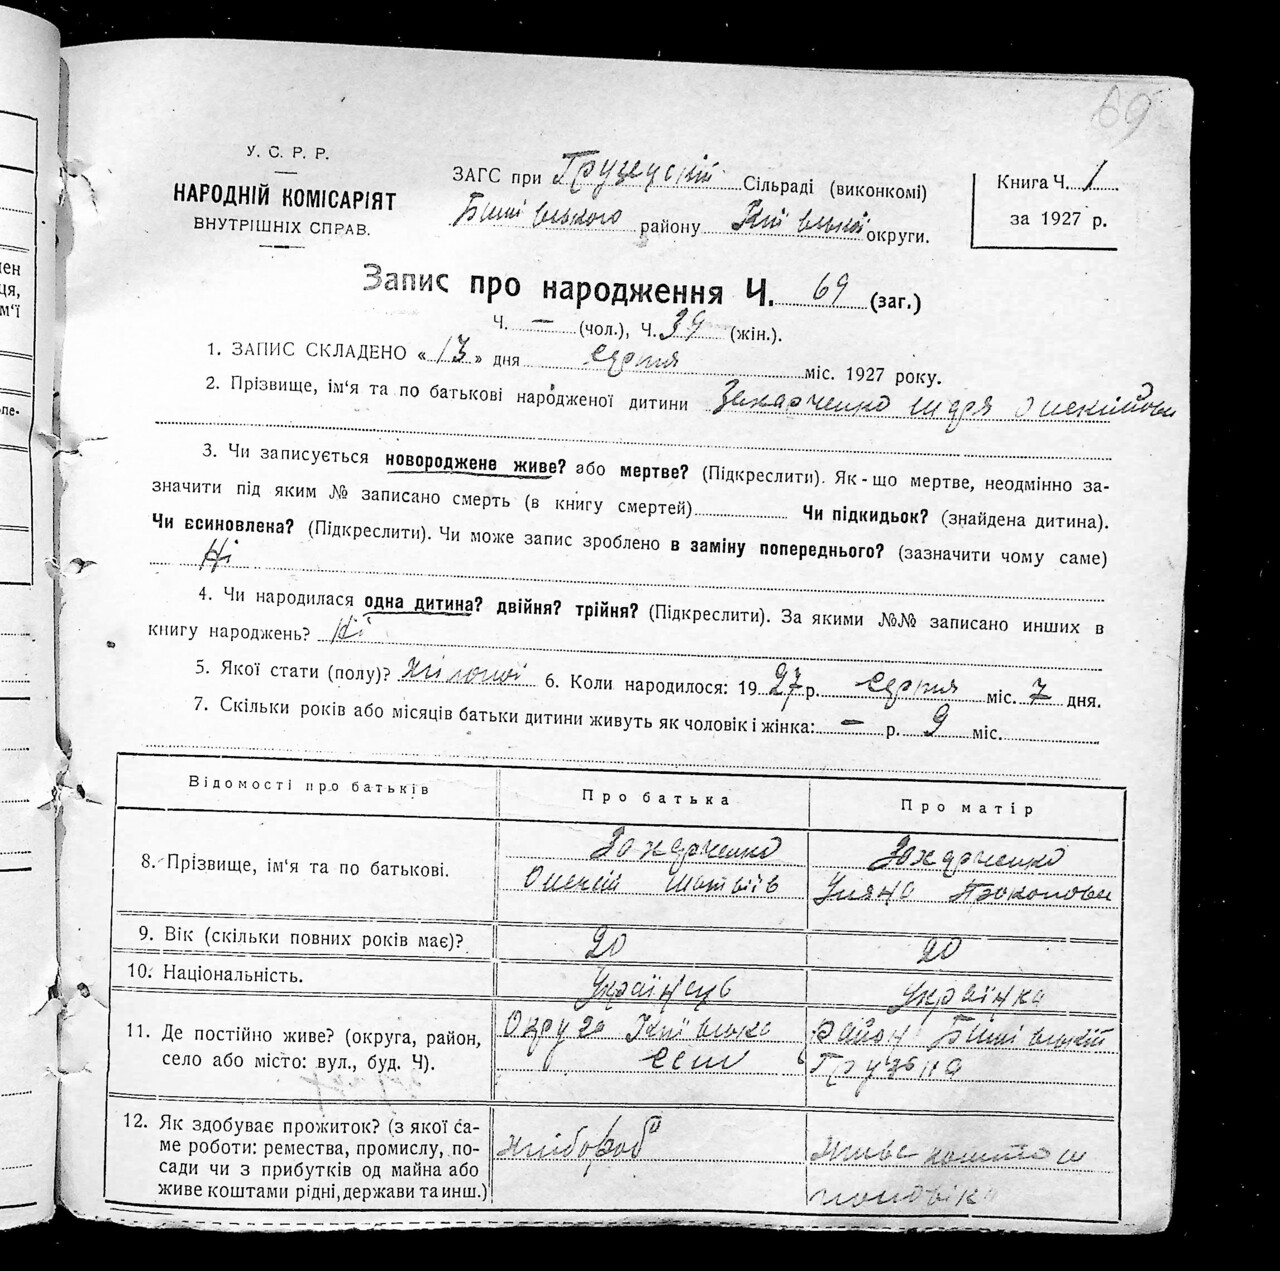 69
У. С. Р. Р.
НАРОДНІЙ КОМІСАРІЯТ
ВНУТРІШНІХ СПРАВ.
ЗАГС при Грузецькій Сільраді (виконкомі)
Бишівського району Київської округи.
Книга Ч. 1
за 1927 р.
Запис про народження Ч. 69 (заг.)
Ч. — (чол.), Ч. 39 (жін.).
1. ЗАПИС СКЛАДЕНО «13» дня серпня міс. 1927 року.
2. Прізвище, ім'я та по батькові народженої дитини Захарченко Марія Олексіївна
3. Чи записується новороджене живе? або мертве? (Підкреслити). Як-що мертве, неодмінно за-
значити під яким № записано смерть (в книгу смертей) Чи підкидьок? (знайдена дитина).
Чи єсиновлена? (Підкреслити). Чи може запис зроблено в заміну попереднього? (зазначити чому саме)
Ні
4. Чи народилася одна дитина? двійня? трійня? (Підкреслити). За якими №№ записано инших в
книгу народжень? Ні
5. Якої стати (полу)? жіночої 6. Коли народилося: 1927 р. серпня міс. 7 дня.
7. Скільки років або місяців батьки дитини живуть як чоловік і жінка: — р. 9 міс.
Відомості про батьків
Про батька
Про матір
8. Прізвище, ім'я та по батькові.
Захарченко
Олексій Матвіїв
Захарченко
Уляна Прокопова
9. Вік (скільки повних років має)?
20
20
10. Національність.
Українець
Українка
11. Де постійно живе? (округа, район,
село або місто: вул., буд. Ч).
Округа Київська
село
Район Бишівський
Грузька
12. Як здобуває прожиток? (з якої са-
ме роботи: ремества, промислу, по-
сади чи з прибутків од майна або
живе коштами рідні, держави та инш.)
хлібороб
живе коштом
чоловіка